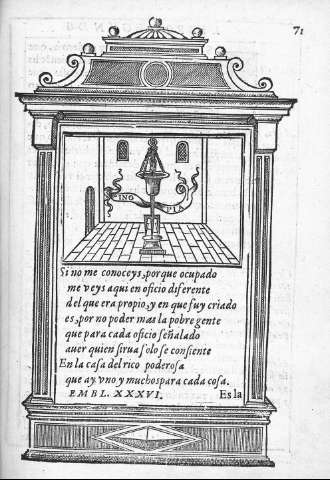 71
INO
PIA
Si no me conoceys, porque ocupado
me veys aqui en oficio diferente
del que era propio, y en que fuy criado
es, por no poder mas la pobre gente
que para cada oficio señalado
auer quien sirua solo se consiente
En la casa del rico poderosa
que ay vno y muchos para cada cosa.
EMBL. XXXVI.
Es la